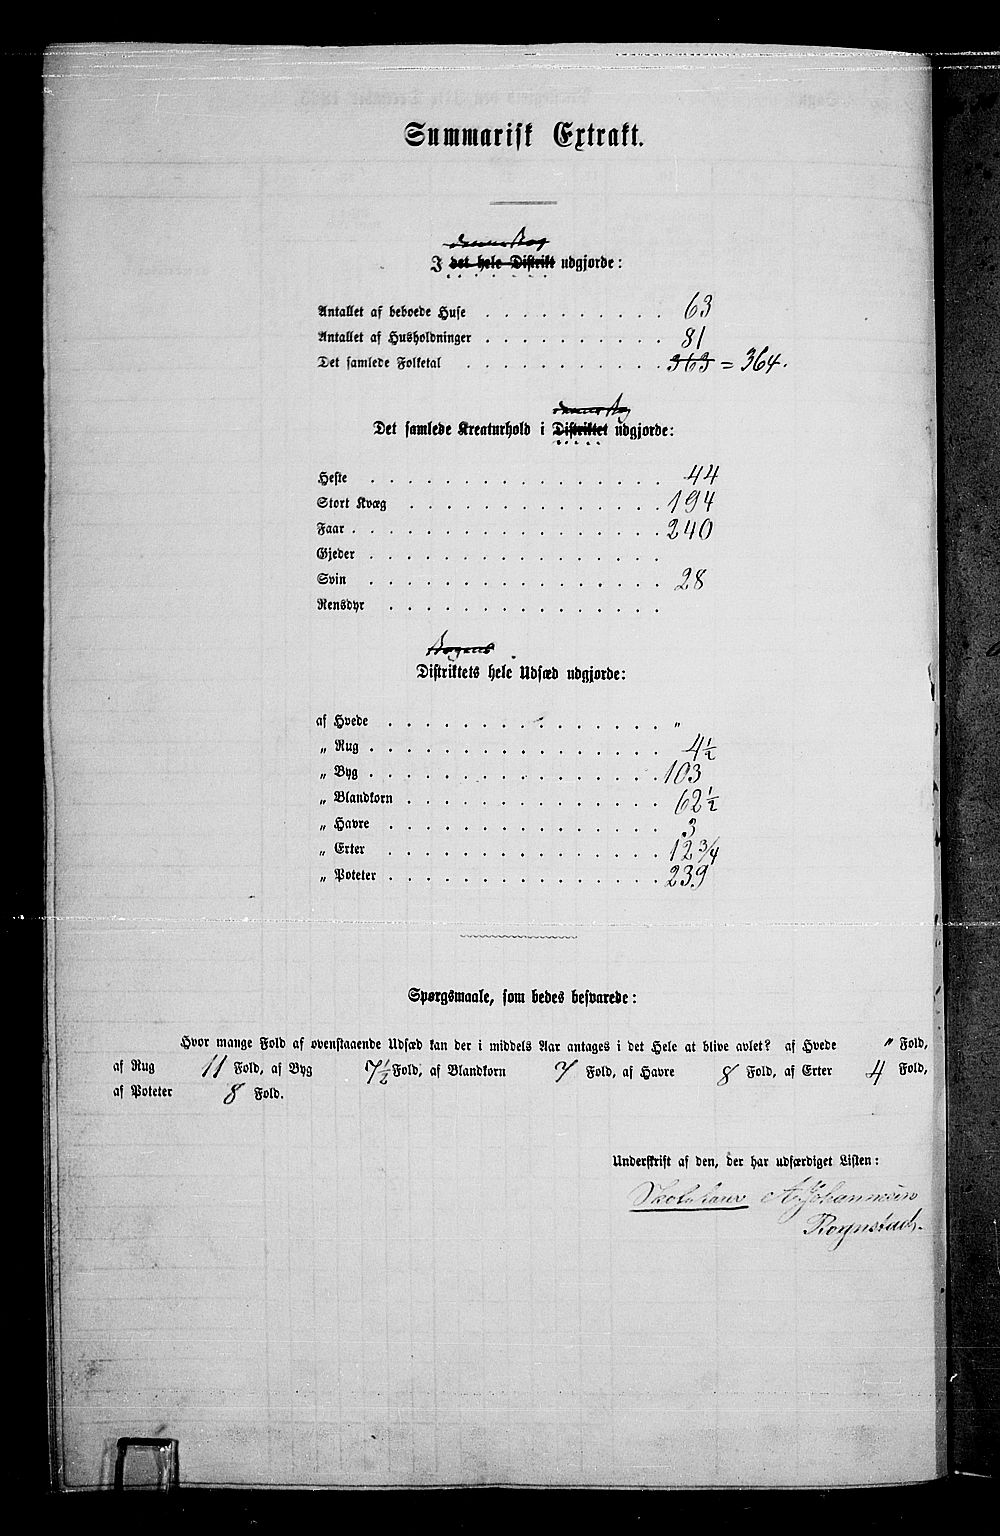 Summarisk Extrakt.
denne Bog
I det hele Distrikt udgjorde:
Antallet af beboede Huse 63
Antallet af Husholdninger 81
Det samlede Folketal 363 = 364.
denne Bog
Det samlede Kreaturhold i Distriktet udgjorde:
Heste 44
Stort Kvæg 194
Faar 240
Gjeder
Svin 28
Rensdyr
Bogens
Distriktets hele Udsæd udgjorde:
af Hvede "
" Rug 4½
" Byg 103
" Blandkorn 62½
" Havre 3
" Erter 12¾
" Poteter 239
Spørgsmaale, som bedes besvarede:
Hvor mange Fold af ovenstaaende Udsæd kan der i middels Aar antages i det Hele at blive avlet? af Hvede " Fold,
af Rug 11 Fold, af Byg 7½ Fold, af Blandkorn 7 Fold, af Havre 8 Fold, af Erter 4 Fold,
af Poteter 8 Fold.
Underskrift af den, der har udfærdiget Listen:
A. Johannesen